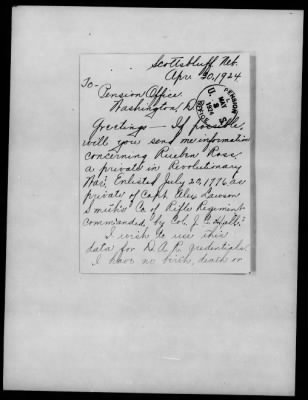 Scottsbluff, Neb.
Apr 30, 1924
To-
Pension Office
Washington, D.
MAY
3
1924
Greetings - If possible,
will you send me information
concerning Rueben Ross
a private in Revolutionary
War. Enlisted July 20, 1776 as
private of Capt Alex Lawson
Smith's Co of Rifle Regiment
commanded by Col. J. C. Hall."
I wish to use this
data for D A R credentials.
I have no birth, death or